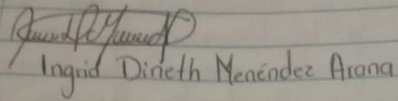 Ingrid Dineth Menéndez Arana